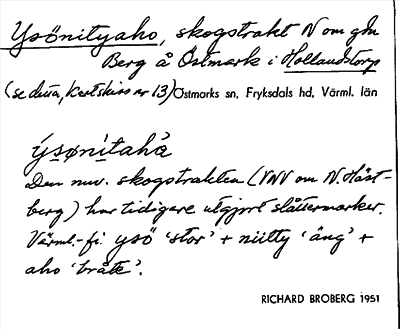 Ysönityaho, skogstrakt N om gdn
Berg å Östmark i Hollandstorp
(se detta, Kartskiss nr 13) Östmarks sn, Fryksdals hd, Värml. län
ýsǫnìtahà
Den nuv. skogstrakten (VNV om N. Häst-
berg) har tidigare utgjort slåttermarker.
Värml.-fi. ysö 'stor' + niitty 'äng' +
aho 'bråte'.
RICHARD BROBERG 1951